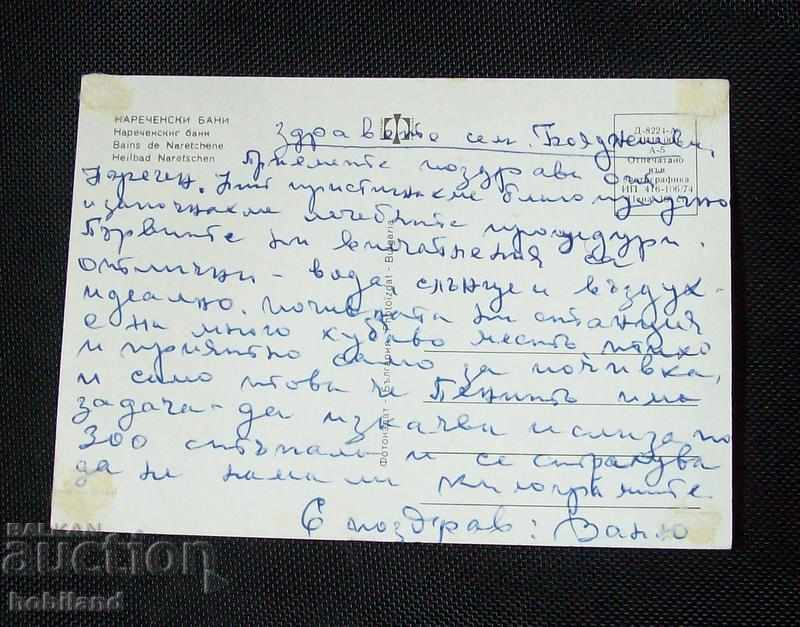 НАРЕЧЕНСКИ БАНИ
Нареченские бани
Bains de Naretchene
Heilbad Naretschen
Д-8221-А
А-5
Отпечатано
във
ИП 416-106/74
Здравейте сем. Бояджиеви,
Приемете поздрави от
Наречен. Ний пристигнахме благополучно
и започнахме лечебните процедури.
Първите ни впечатления са
отлични - вода, слънце и въздух -
идеално. почивната ни станция
е на много хубаво место тихо
и приятно само за почивка,
и само това че Пенчитъ има
задача - да изкачва и слиза по
300 стъпала и се страхува
да не намали килограмите
С поздрав: Ваню
Фотоиздат - България · Photoizdat - Bulgaria
BALKAN
auction
hobiland